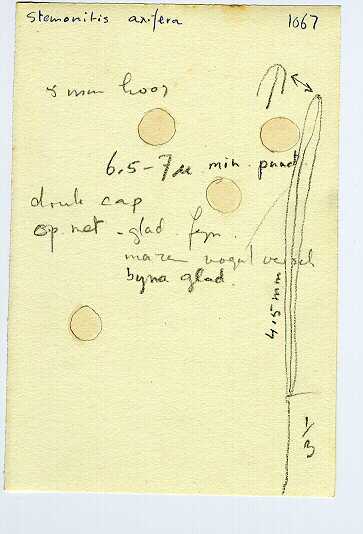 Stemonitis axifera 1067
5 mm hoog
6.5-7µ min. punct.
druk cap
op net - glad. fyn.
mazen nogal versch
byna glad.
4.5 mm
1/3